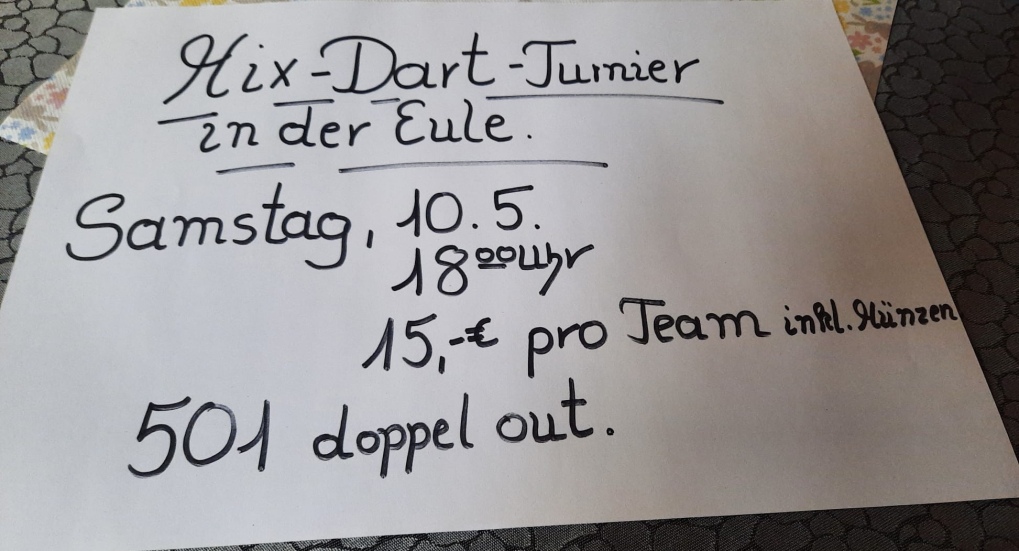 Mix-Dart-Turnier
in der Eule.
Samstag, 10.5.
18⁰⁰ Uhr
15,-€ pro Team inkl. Münzen
501 doppel out.